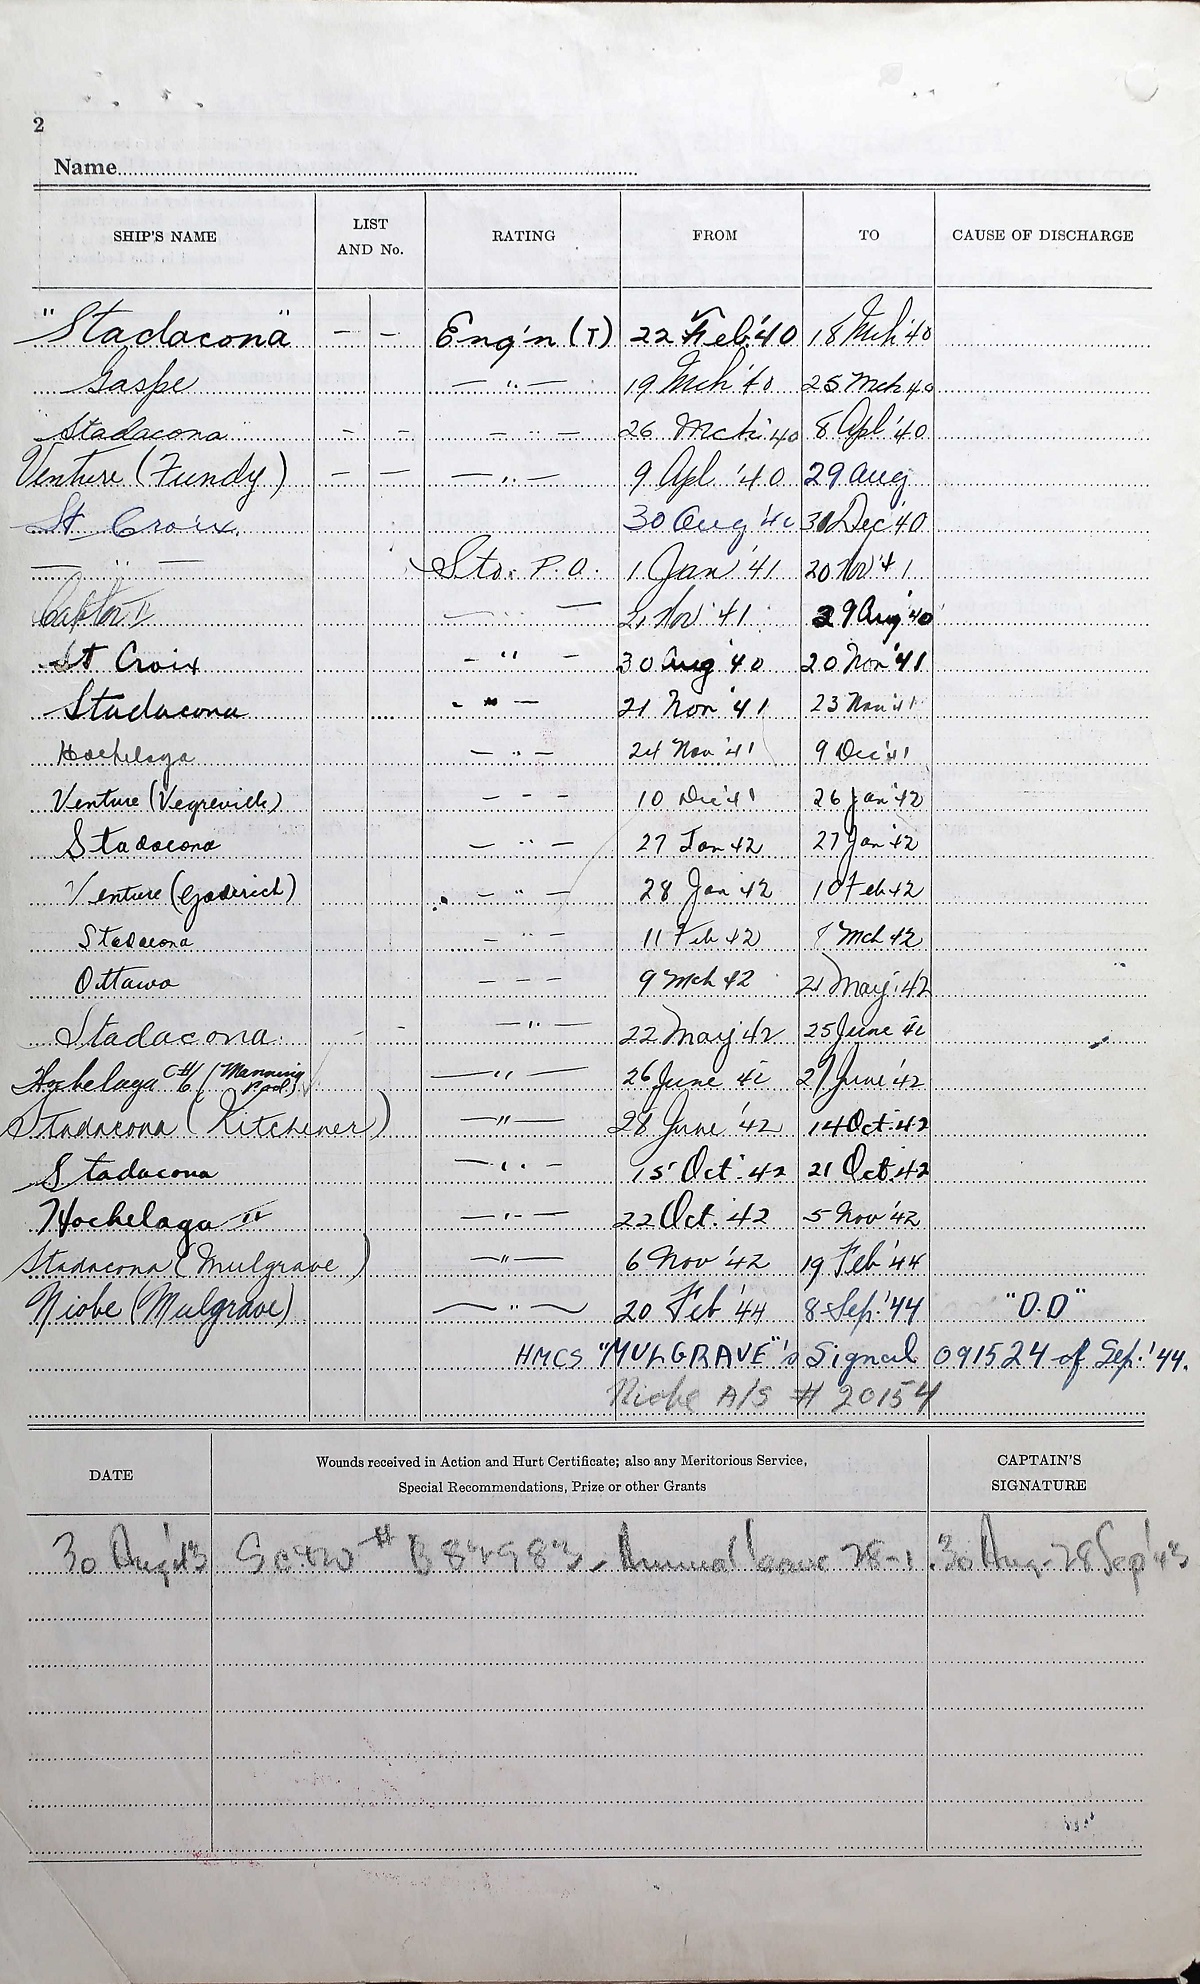 2
Name
SHIP'S NAME LIST AND No. RATING FROM TO CAUSE OF DISCHARGE
"Stadacona" — — Eng'n (T) 22 Feb. '40 18 Mch '40
Gaspe — " — 19 Mch '40 25 Mch 40
Stadacona — — — " — 26 Mch '40 8 Apl '40
Venture (Fundy) — — — " — 9 Apl '40 29 Aug
St Croix. 30 Aug '40 31 Dec '40
— " — Sto. P.O. 1 Jan '41 20 Nov '41
— " — 21 Nov '41 29 Aug '40
St Croix — " — 30 Aug '40 20 Nov '41
Stadacona — " — 21 Nov '41 23 Nov '41
Hochelaga — " — 24 Nov '41 9 Dec '41
Venture (Vegreville) — — — 10 Dec '41 26 Jan '42
Stadacona — " — 27 Jan 42 27 Jan 42
Venture (Goderich) — " — 28 Jan 42 10 Feb 42
Stadacona — " — 11 Feb 42 Mch 42
Ottawa — — — 9 Mch 42 21 May. 42
Stadacona — — — " — 22 May '42 25 June 42
Hochelaga (Manning Pool) — " — 26 June 42 27 June '42
Stadacona (Kitchener) — " — 28 June '42 14 Oct. 42
Stadacona — " — 15 Oct. 42 21 Oct. 42
Hochelaga II — " — 22 Oct. 42 5 Nov '42
Stadacona (Mulgrave) — " — 6 Nov '42 19 Feb '44
Niobe (Mulgrave) — " — 20 Feb '44 8 Sep. '44 "D.D"
HMCS "MULGRAVE"'s Signal 091524 of Sep. '44.
Niobe A/S # 20154
DATE Wounds received in Action and Hurt Certificate; also any Meritorious Service, Special Recommendations, Prize or other Grants CAPTAIN'S SIGNATURE
30 Aug '43 # Annual leave 28-1. 30 Aug - 28 Sep '43